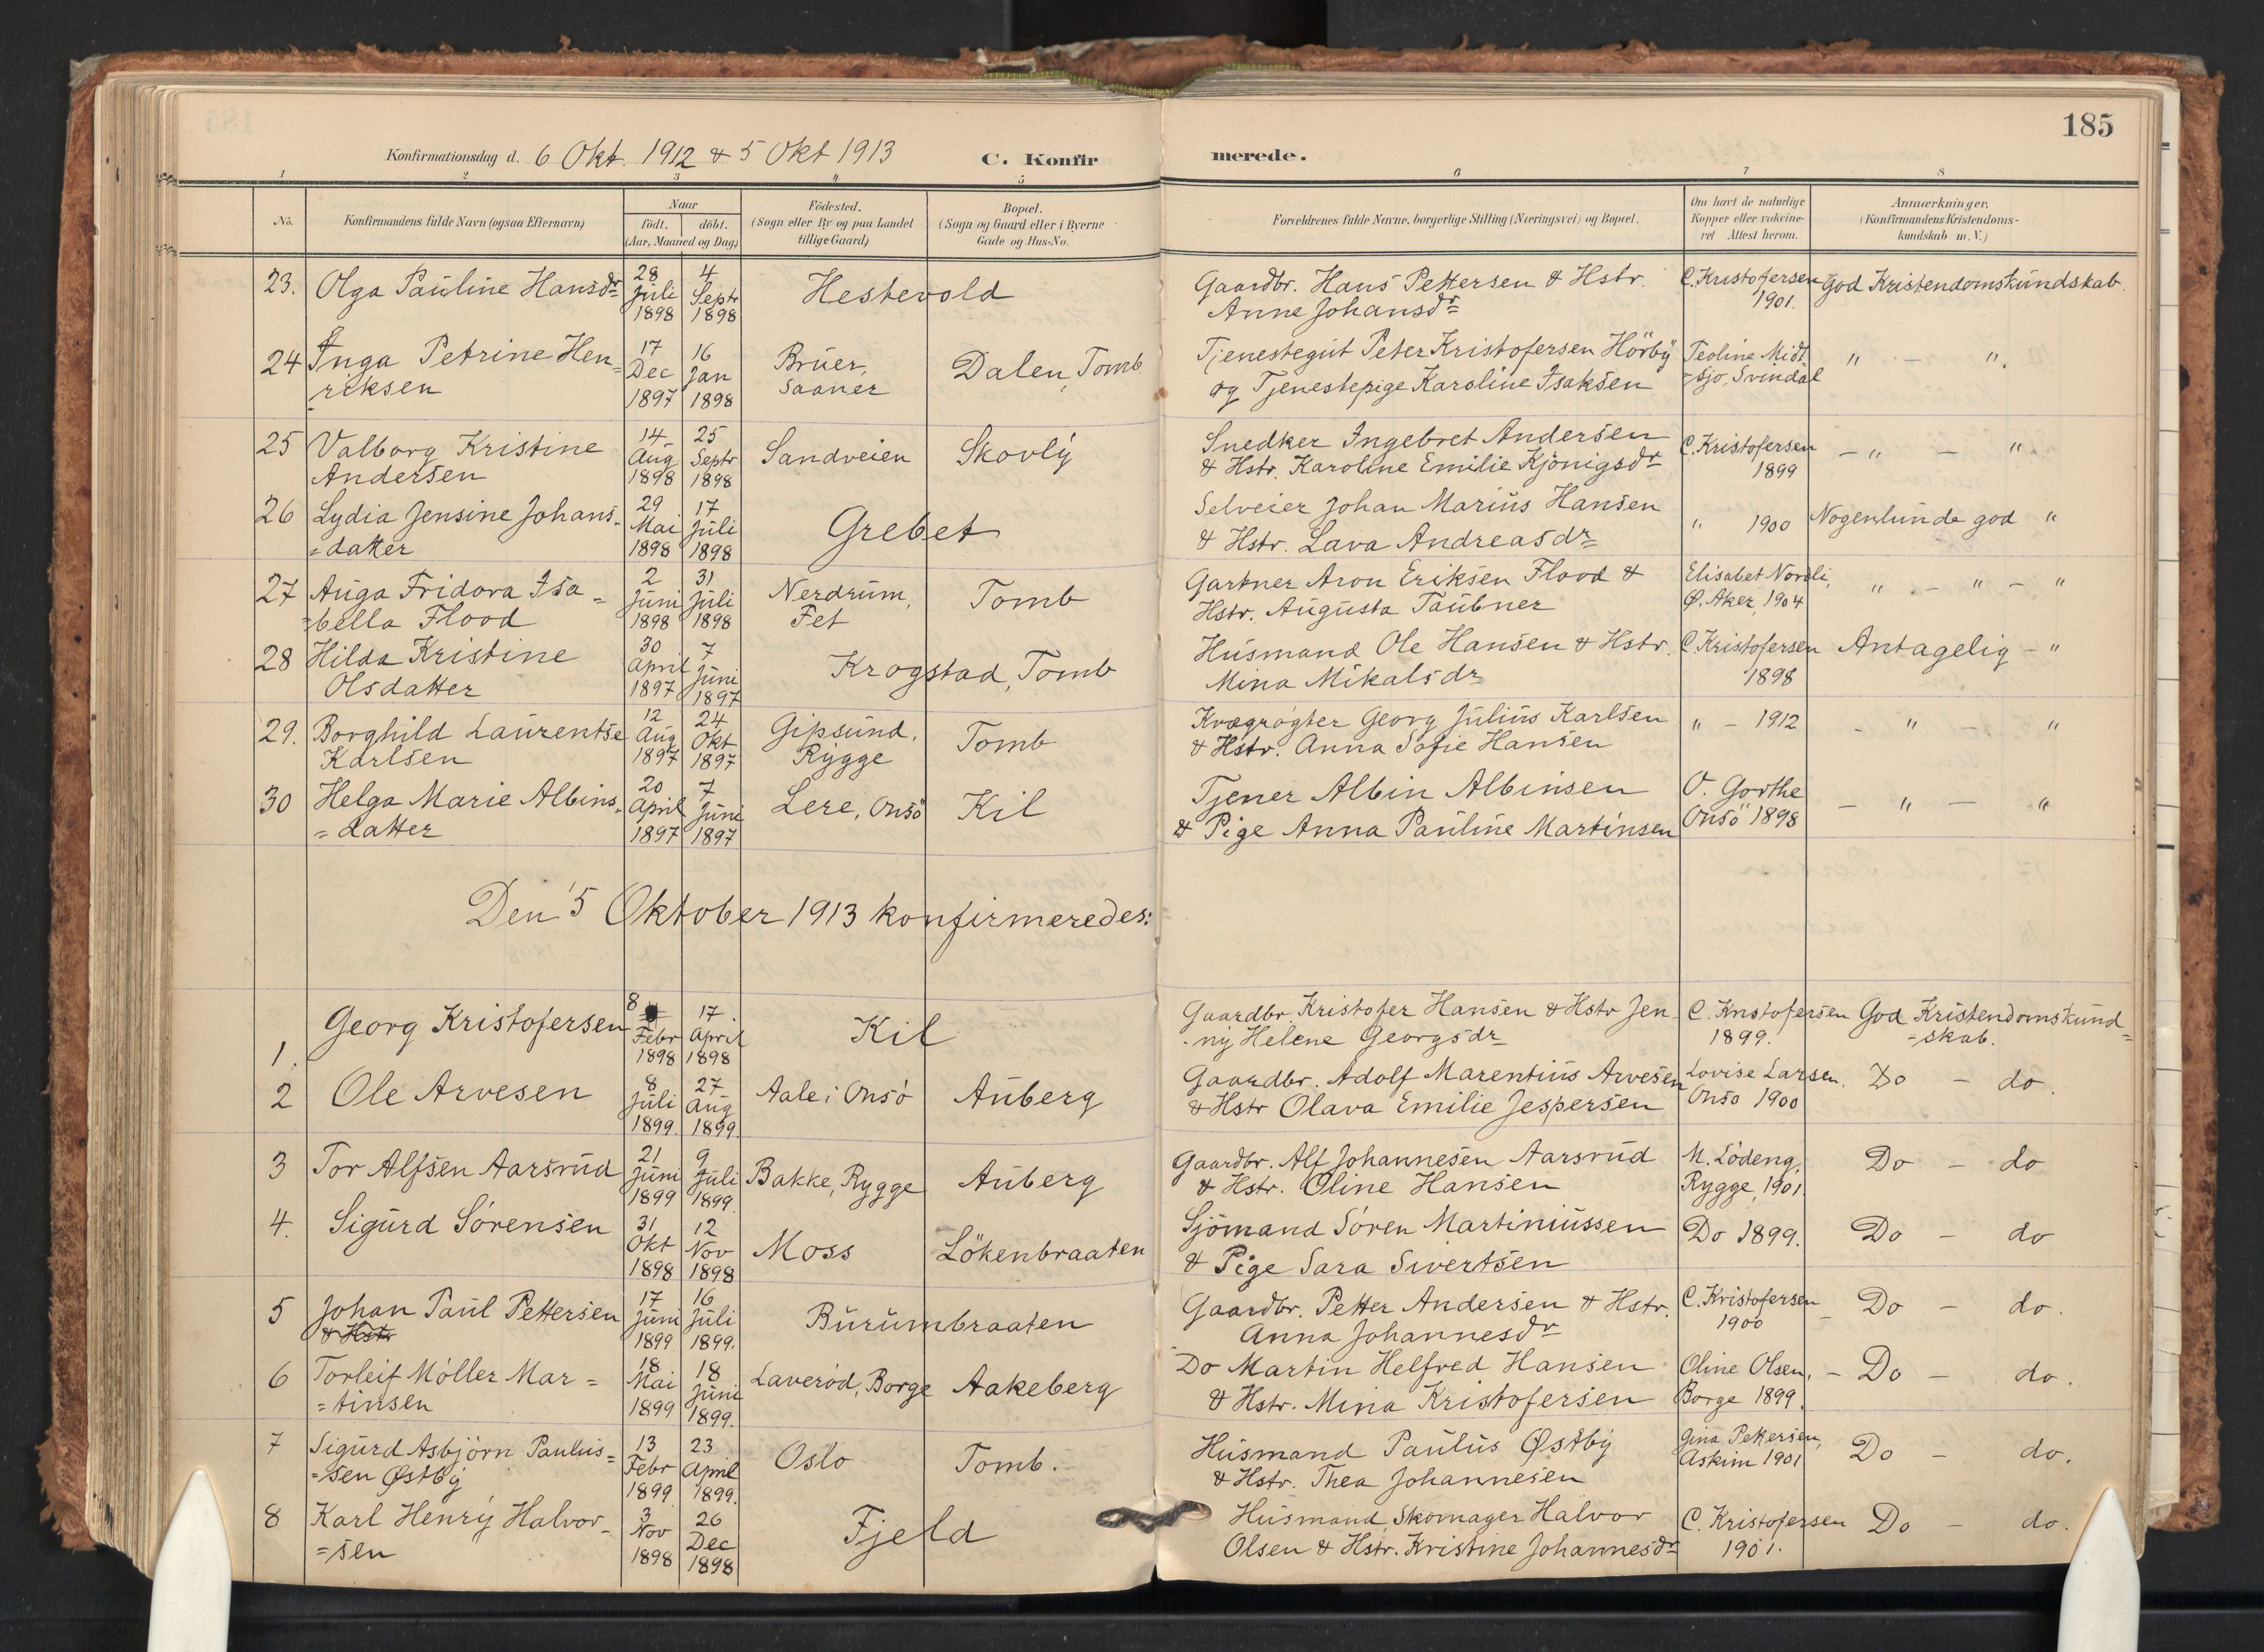 185
Konfirmationsdag d. 6 Okt. 1912 & 5 Okt 1913
C. Konfir
merede.
1 2 3 4 5 6 7 8
No.
Konfirmandens fulde Navn (ogsaa Efternavn)
Naar
født. døbt.
(Aar, Maaned og Dag)
Födested.
(Sogn eller By og paa Landet
tillige Gaard)
Bopæl.
(Sogn og Gaard eller i Byerne
Gade og Hus-No.
Forældrenes fulde Navne, borgerlige Stilling (Næringsvei) og Bopæl.
Om havt de naturlige
Kopper eller vakcine-
ret Attest herom.
Anmærkninger.
(Konfirmandens Kristendoms-
kundskab m. V.)
23. Olga Pauline Hansdr
28 Juli 1898
4 Septr 1898
Hestevold
Gaardbr. Hans Pettersen & Hstr.
Anne Johansdr
C. Kristofersen
1901.
God Kristendomskundskab.
24 Inga Petrine Hen=
riksen
17 Dec 1897
16 Jan 1898
Bruer,
Saaner
Dalen, Tomb
Tjenestegut Peter Kristofersen Hörby
og Tjenestepige Karoline Isaksen
Teoline Midt
=sjo, Svindal
" - ".
25 Valborg Kristine
Andersen
14 Aug 1898
25 Septr 1898
Sandveien
Skovly
Snedker Ingebret Andersen
& Hstr. Karoline Emilie Kjönigsdr
C. Kristofersen
1899
- " - "
26 Lydia Jensine Johans=
=datter
29 Mai 1898
17 Juli 1898
Grebet
Selveier Johan Marius Hansen
& Hstr. Lava Andreasdr
" 1900
Nogenlunde god "
27 Auga Fridora Isa=
=bella Flood
2 Juni 1898
31 Juli 1898
Nerdrum,
Fet
Tomb
Gartner Aron Eriksen Flood &
Hstr. Augusta Taubner
Elisabet Nordli,
Ø. Aker, 1904
" - " - "
28 Hilda Kristine
Olsdatter
30 April 1897
7 Juni 1897
Krogstad, Tomb
Husmand Ole Hansen & Hstr.
Mina Mikalsdr
C. Kristofersen
1898
Antagelig - "
29. Borghild Laurentse
Karlsen
12 Aug 1897
24 Okt 1897
Gipsund,
Rygge
Tomb
Kvægrögter Georg Julius Karlsen
& Hstr. Anna Sofie Hansen
" - 1912
- " - "
30 Helga Marie Albins=
=datter
20 April 1897
7 Juni 1897
Lere, Onsö
Kil
Tjener Albin Albinsen
& Pige Anna Pauline Martinsen
O. Gorthe
Onsö 1898
- " - "
Den 5 Oktober 1913 konfirmeredes:
1. Georg Kristofersen
8 Febr 1898
17 April 1898
Kil
Gaardbr Kristofer Hansen & Hstr Jen-
ny Helene Georgsdr
C. Kristofersen
1899.
God Kristendomskund=
=skab.
2 Ole Arvesen
8 Juli 1899.
27 Aug 1899.
Aale i Onsö
Auberg
Gaardbr. Adolf Marentius Arvesen
& Hstr Olava Emilie Jespersen
Lovise Larsen.
Onso 1900
Do - do.
3 Tor Alfsen Aarsrud
21 Juni 1899
9 Juli 1899.
Bakke, Rygge
Auberg
Gaardbr. Alf Johannesen Aarsrud
& Hstr. Oline Hansen
M. Lödeng,
Rygge, 1901.
Do - do
4. Sigurd Sörensen
31 Okt 1898
12 Nov 1898
Moss
Lökenbraaten
Sjömand Sören Martiniussen
& Pige Sara Sivertsen
Do 1899.
Do - do
5 Johan Paul Pettersen
& Hstr
17 Juni 1899
16 Juli 1899.
Burumbraaten
Gaardbr. Petter Andersen & Hstr.
Anna Johannesdr
C. Kristofersen
1900
Do - do.
6 Torleif Möller Mar=
=tinsen
18 Mai 1899
18 Juni 1899.
Laveröd, Borge
Aakeberg
Do Martin Helfred Hansen
& Hstr. Mina Kristofersen
Oline Olsen,
Borge 1899.
- Do - do.
7 Sigurd Asbjörn Paulus=
=sen Østby
13 Febr 1899
23 April 1899.
Oslo
Tomb.
Husmand Paulus Østby
& Hstr. Thea Johannesen
Gina Pettersen,
Askim 1901
Do - do.
8 Karl Henry Halvor=
=sen
3 Nov 1898
26 Dec 1898
Fjeld
Husmand Skomager Halvor
Olsen & Hstr. Kristine Johannesdr
C. Kristofersen
1901.
Do - do.